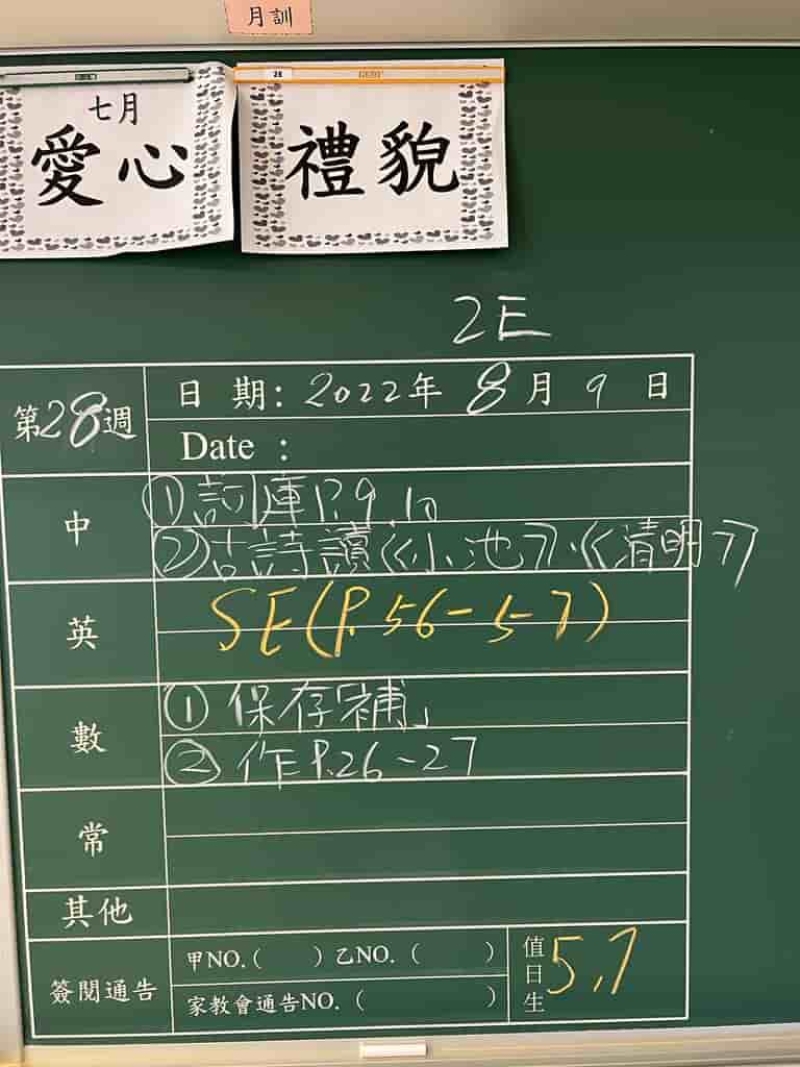 月訓
七月
愛心
禮貌
2E
第28週
日 期：2022年 8月 9 日
Date ：
中
①詞庫P.9.10
②古詩讀《小池》.《清明》
英
SE(P.56-57)
數
① 保存「補」
② 作P.26-27
常
其他
簽閱通告
甲NO.( ) 乙NO.( )
家教會通告NO.( )
值日生
5,7